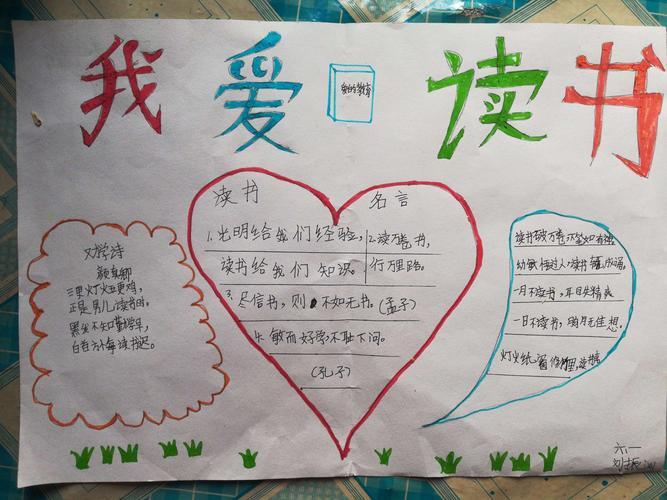 我爱读书
爱的教育
劝学诗
颜真卿
三更灯火五更鸡,
正是男儿读书时,
黑发不知勤学早,
白首方悔读书迟。
读书 名言
1. 光明给我们经验,
读书给我们知识。
2. 读万卷书,
行万里路。
3. 尽信书,则不如无书。(孟子)
4. 敏而好学不耻下问。
(孔子)
读书破万卷 下笔如有神
幼敏悟过人,读书辄成诵。
一月不读书,耳目失精爽
一日不读书,胸月无佳想。
灯火纸窗修竹里,读书
六一